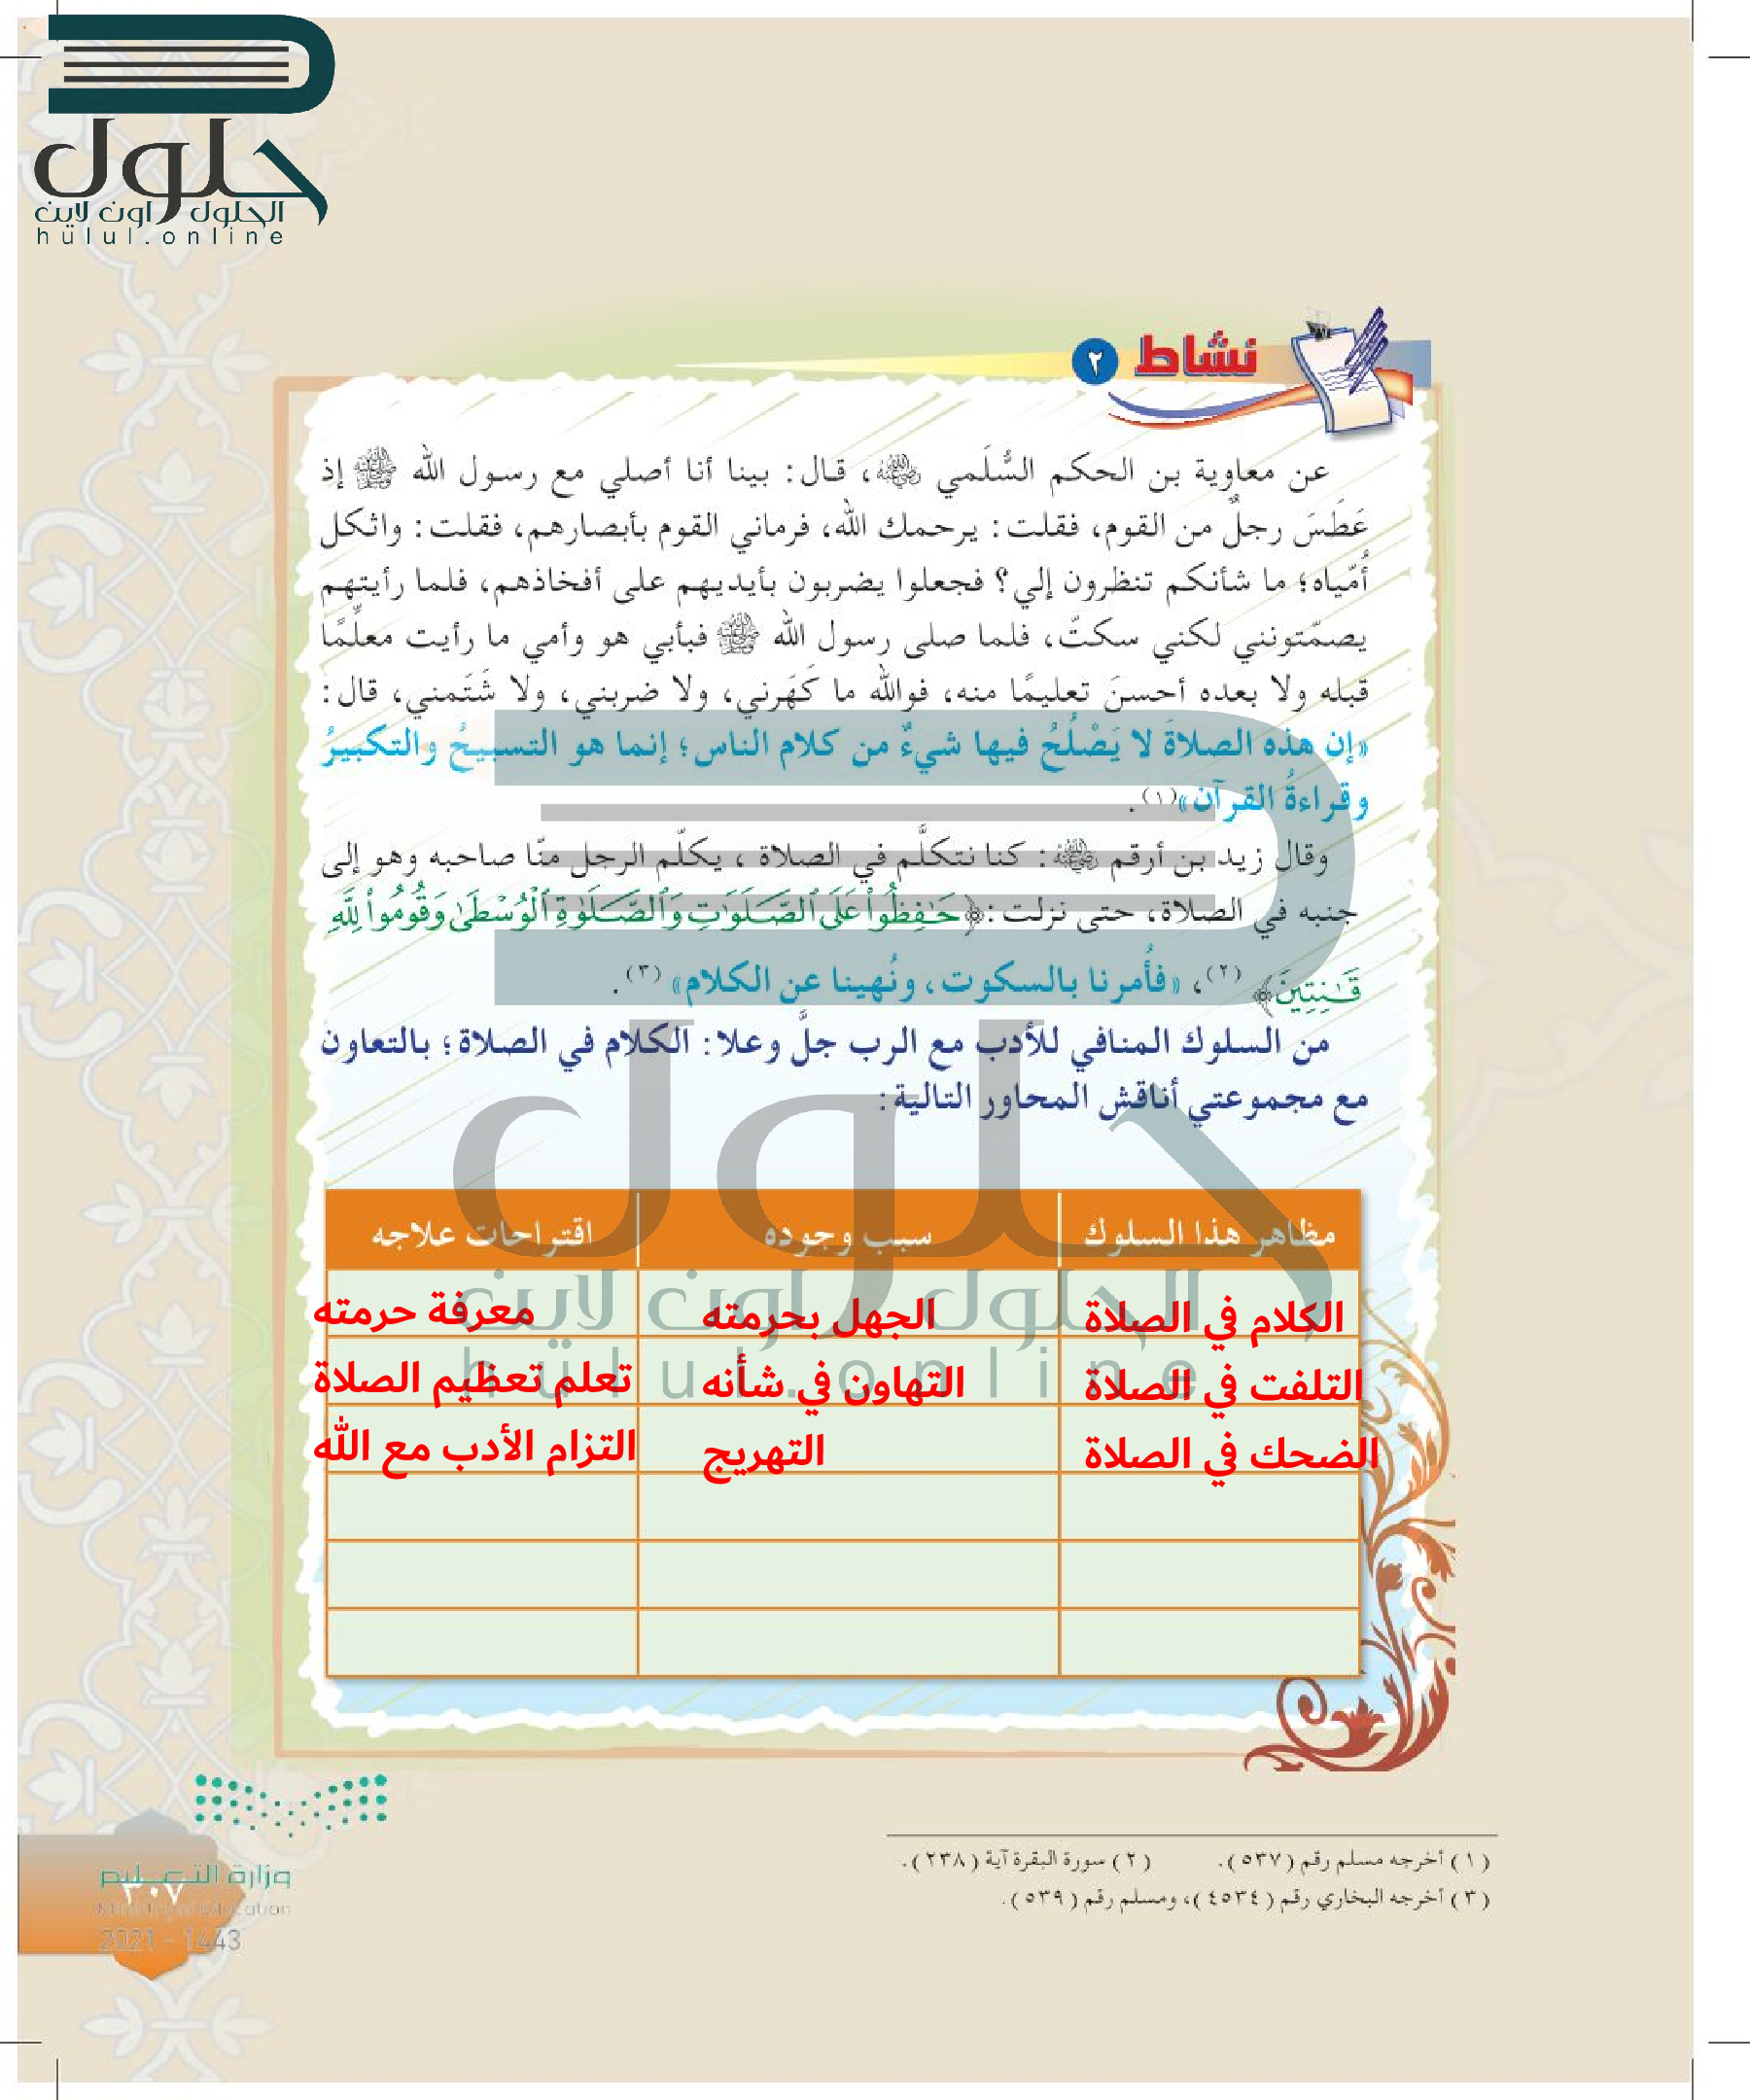 حلول
الحلول اون لاين
hülul.online
نشاط ٢
عن معاوية بن الحكم السُّلَمي رضي الله عنه، قال: بينا أنا أصلي مع رسول الله ﷺ إذ
عَطَسَ رجلٌ من القوم، فقلت: يرحمك الله، فرماني القوم بأبصارهم، فقلت: واثكل
أُمّياه؛ ما شأنكم تنظرون إلي؟ فجعلوا يضربون بأيديهم على أفخاذهم، فلما رأيتهم
يصمّتونني لكني سكتّ، فلما صلى رسول الله ﷺ فبأبي هو وأمي ما رأيت معلِّمًا
قبله ولا بعده أحسنَ تعليمًا منه، فوالله ما كَهَرني، ولا ضربني، ولا شَتَمني، قال:
«إن هذه الصلاةَ لا يَصْلُحُ فيها شيءٌ من كلام الناس؛ إنما هو التسبيحُ والتكبيرُ
وقراءةُ القرآن»(١).
وقال زيد بن أرقم رضي الله عنه: كنا نتكلَّم في الصلاة، يكلّم الرجل منّا صاحبه وهو إلى
جنبه في الصلاة، حتى نزلت: ﴿حَـٰفِظُوا۟ عَلَى ٱلصَّلَوَٰتِ وَٱلصَّلَوٰةِ ٱلْوُسْطَىٰ وَقُومُوا۟ لِلَّهِ
قَـٰنِتِينَ﴾ (٢)، «فأُمرنا بالسكوت، ونُهينا عن الكلام» (٣).
من السلوك المنافي للأدب مع الرب جلَّ وعلا: الكلام في الصلاة؛ بالتعاون
مع مجموعتي أناقش المحاور التالية:
مظاهر هذا السلوك سبب وجوده اقتراحات علاجه
الكلام في الصلاة الجهل بحرمته معرفة حرمته
التلفت في الصلاة التهاون في شأنه تعلم تعظيم الصلاة
الضحك في الصلاة التهريج التزام الأدب مع الله
حلول
الحلول اون لاين
hülul.online
(١) أخرجه مسلم رقم (٥٣٧). (٢) سورة البقرة آية (٢٣٨).
(٣) أخرجه البخاري رقم (٤٥٣٤)، ومسلم رقم (٥٣٩).
وزارة التعليم
٣٠٧
Ministry of Education
2021 - 1443